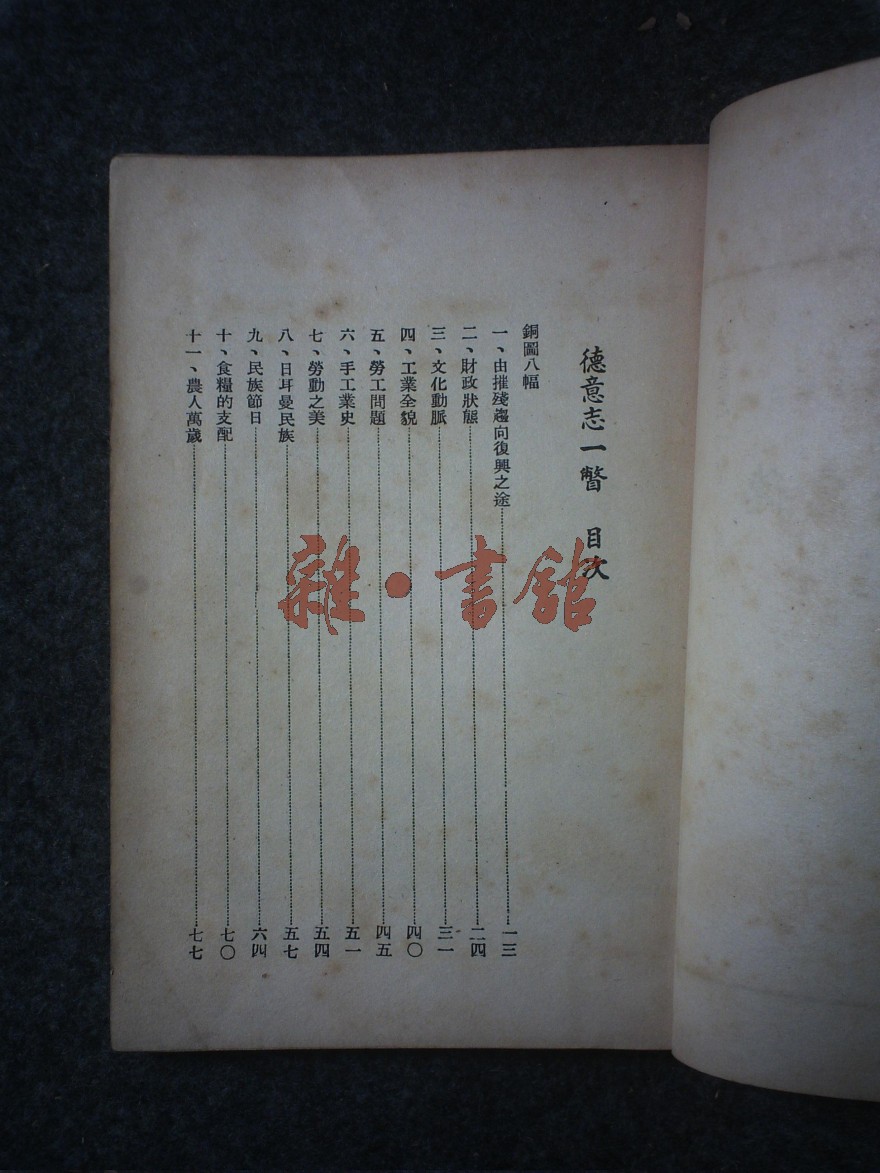 德意志一瞥 目次
銅圖八幅
一、由摧殘趨向復興之途……一三
二、財政狀態……二四
三、文化動脈……三一
四、工業全貌……四〇
五、勞工問題……四五
六、手工業史……五一
七、勞動之美……五四
八、日耳曼民族……五七
九、民族節日……六四
十、食糧的支配……七〇
十一、農人萬歲……七七
雜·書館